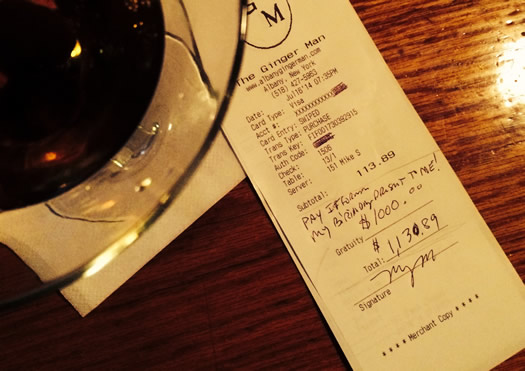 M
The Ginger Man
www.albanygingerman.com
Albany, New York
(518) 427-5963
Date: Jul16'14 07:35PM
Card Type: Visa
Acct #: XXXXXXXXXXXX
Card Entry: SWIPED
Trans Type: PURCHASE
Trans Key: FIF001730382915
Auth Code:
Check: 1506
Table: 13/1
Server: 151 Mike S
Subtotal: 113.89
PAY IT FORWARD
MY BIRTHDAY PRESENT TO ME!
Gratuity $1000.00
Total: $1,130.89
Signature
**** Merchant Copy ****